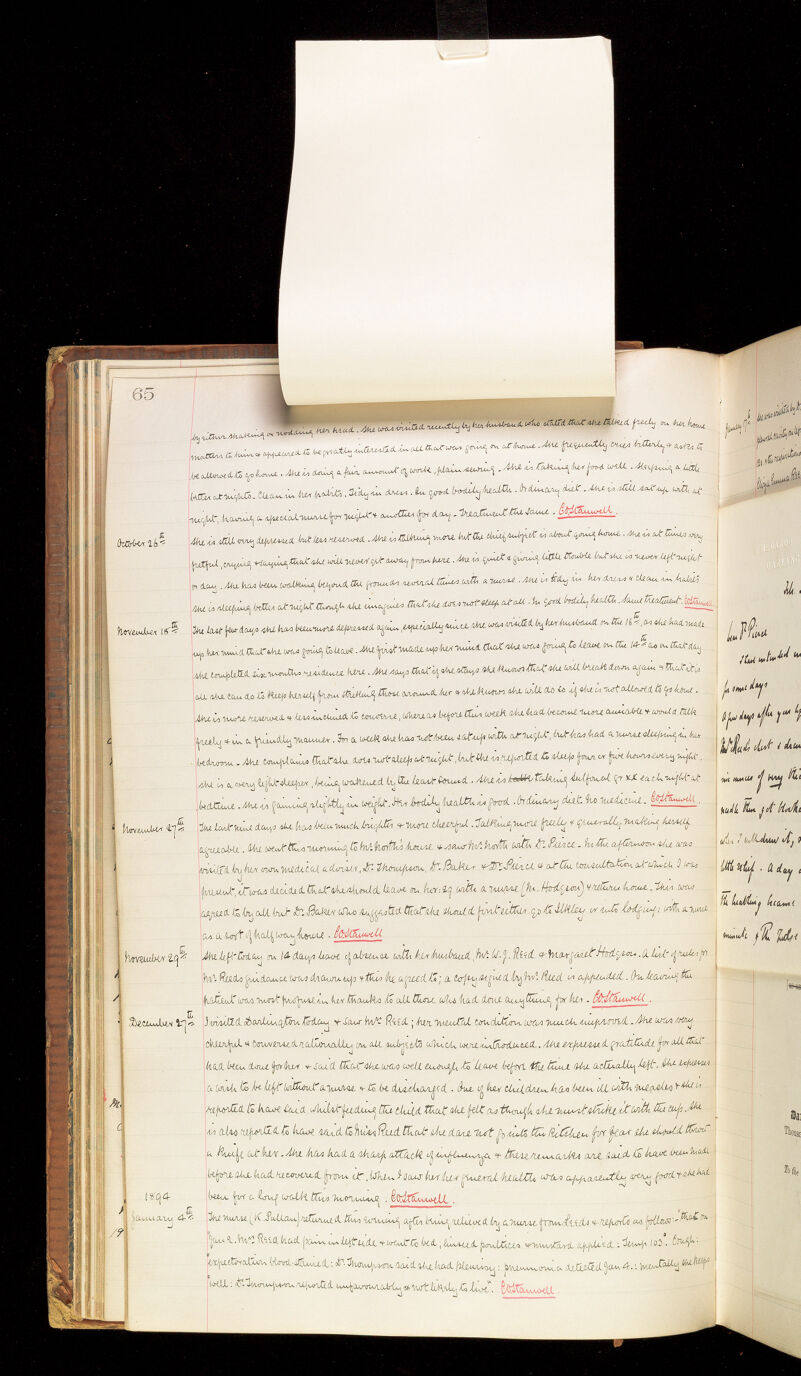 65
by either shaking or nodding her head. She was visited recently by her husband who stated that she talked freely on her home
matters to him & appeared to be greatly interested in all that was going on at home. She frequently cries bitterly & asks to
be allowed to go home. She is doing a fair amount of work, plain sewing. She is taking her food well. Sleeping a little
better at nights. Clean in her habits. Tidy in dress. In good bodily health. Ordinary diet. She is still sat up with at
night, having a special nurse for night & another for day. Treatment the same. C.O. Stanwell.
October 26th She is still very depressed but less reserved. She is talking more but the chief subject is about going home. She is at times very
fretful, crying & saying that she will never get away from here. She is quiet & giving little trouble but she is never left night
or day. She has been walking beyond the grounds several times with a nurse. She is tidy in her dress & clean in habits.
She is sleeping better at night though she imagines that she does not sleep at all. In good bodily health. Same treatment. C.O. Stanwell
November 18th The last few days she has been more depressed again, especially since she was visited by her husband on the 16th, as she had made
up her mind that she was going to leave. She first made up her mind that she was going to leave on the 14th as on that day
she completed six months residence here. She says that if she stays she knows that she will break down again & that it is
all she can do to keep herself from striking those around her & she knows she will do so if she is not allowed to go home.
She is more reserved & less inclined to converse, where as before this week she had become more amiable & would talk
freely & in a friendly manner. For a week she has not been sat up with at night, but has had a nurse sleeping in her
bedroom. She complains that she does not sleep at night, but she is reported to sleep four or five hours every night.
She is a very light sleeper, being wakened by the least sound. She is taking sulfonal gr xx each night at
bedtime. She is gaining slightly in weight. Her bodily health is good. Ordinary diet. No medicine. C.O. Stanwell.
November 27th The last nine days she has been much brighter & more cheerful. Talking more freely & generally making herself
agreeable. She went this morning to Mr North's house & saw Mr North with Dr Pierce. In the afternoon she was
visited by her own medical adviser, Dr Thompson, Dr Baker & Dr Pierce & at the consultation at which I was
present, it was decided that she should leave on Nov: 29 with a nurse (M. Hodgson) & return home. This was
agreed to by all but Dr Baker who suggested that she should first either go to Ilkley or into lodgings with a nurse
as a sort of half way house. C.O. Stanwell
November 29th She left today on 14 days leave of absence with her husband, Mr W.J. Reed & Margaret Hodgson. A list of rules for
Mr Reeds guidance was drawn up & this he agreed to; a copy signed by Mr Reed is appended. On leaving the
patient was most profuse in her thanks to all those who had done anything for her. C.O. Stanwell.
December 27th I visited Darlington today & saw Mrs Reed; her mental condition was much improved. She was very
cheerful & conversed rationally on all subjects which were introduced. She expressed gratitude for all that
had been done for her & said that she was well enough to leave before the time she actually left. She expresses
a wish to be left without a nurse & to be discharged. One of her children has been ill with measles & she is
reported to have said whilst feeding the child that she felt as though she must strike it with the cup. She
is also reported to have said to Miss Reed that she dare not go into the kitchen for fear she should throw
a knife at her. She has had a sharp attack of influenza & these remarks are said to have been made
before she had recovered from it. When I saw her her general health was apparently very good & she had
been for a long walk this morning. C.O. Stanwell.
1894
January 4th The nurse (K. Pullan) returned this evening after being relieved by a nurse from Leeds & reports as follows:- "that on
"Jan 2. Mrs Reed had pain in left side & went to bed; linseed poultices & mustard applied: Temp 103°. Cough:
"expectoration blood-stained: Dr Thompson said she had pleurisy: pneumonia detected Jan 4.: mentally she keeps
"well: Dr Thompson reported unfavourably & not likely to live". C.O. Stanwell.
January 17th She was visited by
Eliza Emma Ree
Feb.
Dear Dr Pierce
I had intended
for some days
a few days after you
Mrs Reeds chest & drew
six ounces of very thi
needle then got block
when I withdrew it,
little relief. A day
the breathing became